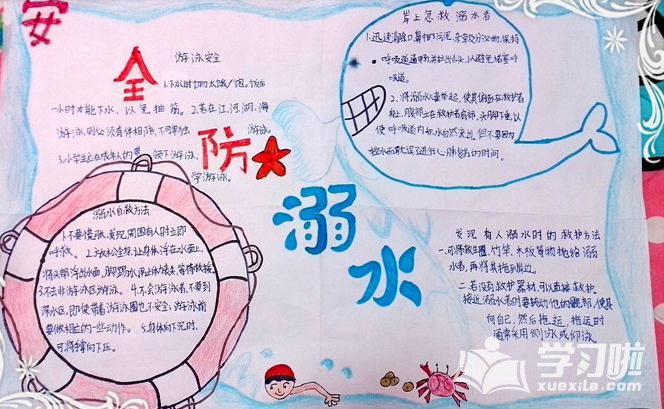 安
全
防
溺
水
游泳安全
1.下水时切勿太饿、饱。饭后
一小时才能下水，以免抽筋。2.若在江、河、湖、海
游泳，则必须有伴相陪，不可单独游泳。
3.小学生应在成年人的带领下游泳、
学游泳。
岸上怎救溺水者
1.迅速清除口鼻中的污泥、杂草及分泌物，保持
呼吸道通畅，并拉出舌头，以避免堵塞呼
吸道。
2.将溺水儿童举起，使其俯卧在救护者
肩上，腹部在救护者肩部，头脚下垂，以
便呼吸道内积水自然流出。但不要因为
控水而耽误了进行心肺复苏的时间。
溺水自救方法
1.不要慌张，发现周围有人时立即
呼救。2.放松全身，让身体浮在水面上，
将头部浮出水面，脚踢水，防止体力丧失，等待救援。
3.不去非游泳区游泳。4.不会游泳者，不要到
深水区，即使带着游泳圈也不安全；游泳前
要做相应的一些动作。5.身体向下沉时，
可将掌向下压。
发现有人溺水时的救护方法
一.可将救生圈、竹竿、木板等物抛给溺
水者，再将其拖到岸边。
二.若没有救护器材，可以直接救护。
接近溺水者时要转动他的髋部，使其
背向自己，然后拖运，拖运时
通常采用侧泳或仰泳。
学习啦
xuexila.com